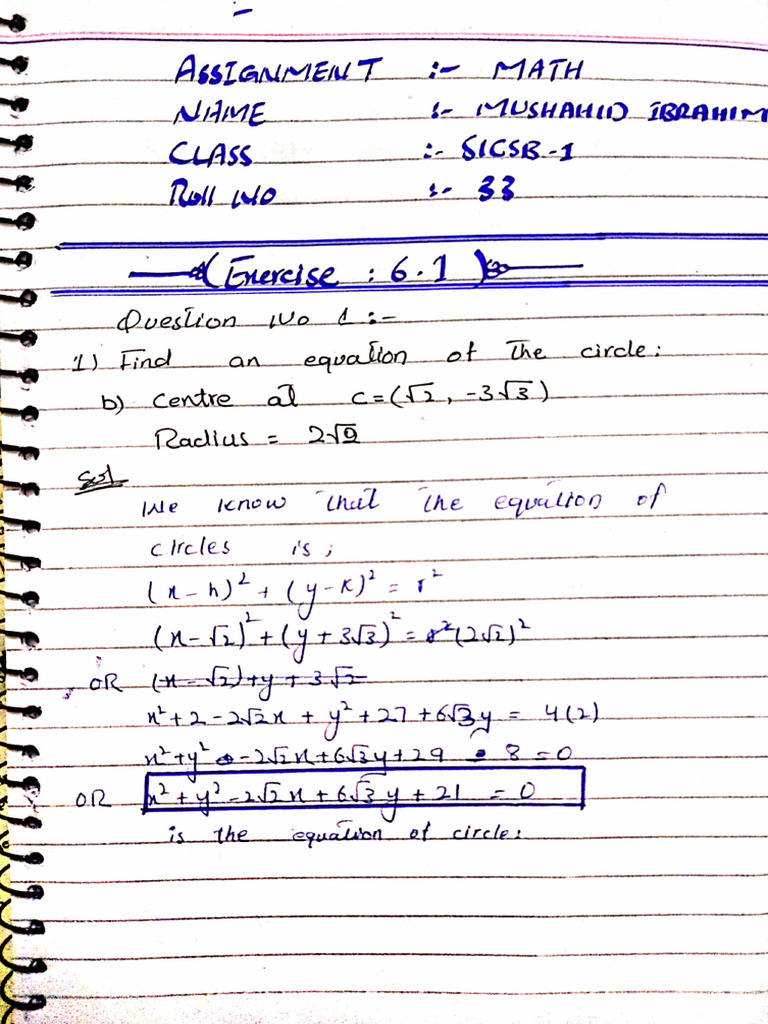 ASSIGNMENT :- MATH
NAME :- MUSHAHID IBRAHIM
CLASS :- SICSB-1
Roll NO :- 33
(Exercise : 6.1)
Question No 1 :-
1) Find an equation of the circle:
b) Centre at C=(√2, -3√3)
Radius = 2√2
Sol
We know that the equation of
circles is;
(x-h)² + (y-k)² = r²
(x-√2)² + (y+3√3)² = (2√2)²
OR (x-√2)+y+3√2
x²+2-2√2x + y²+27+6√3y = 4(2)
x²+y²-2√2x+6√3y+29 - 8 = 0
OR x²+y²-2√2x+6√3y+21 = 0
is the equation of circle: